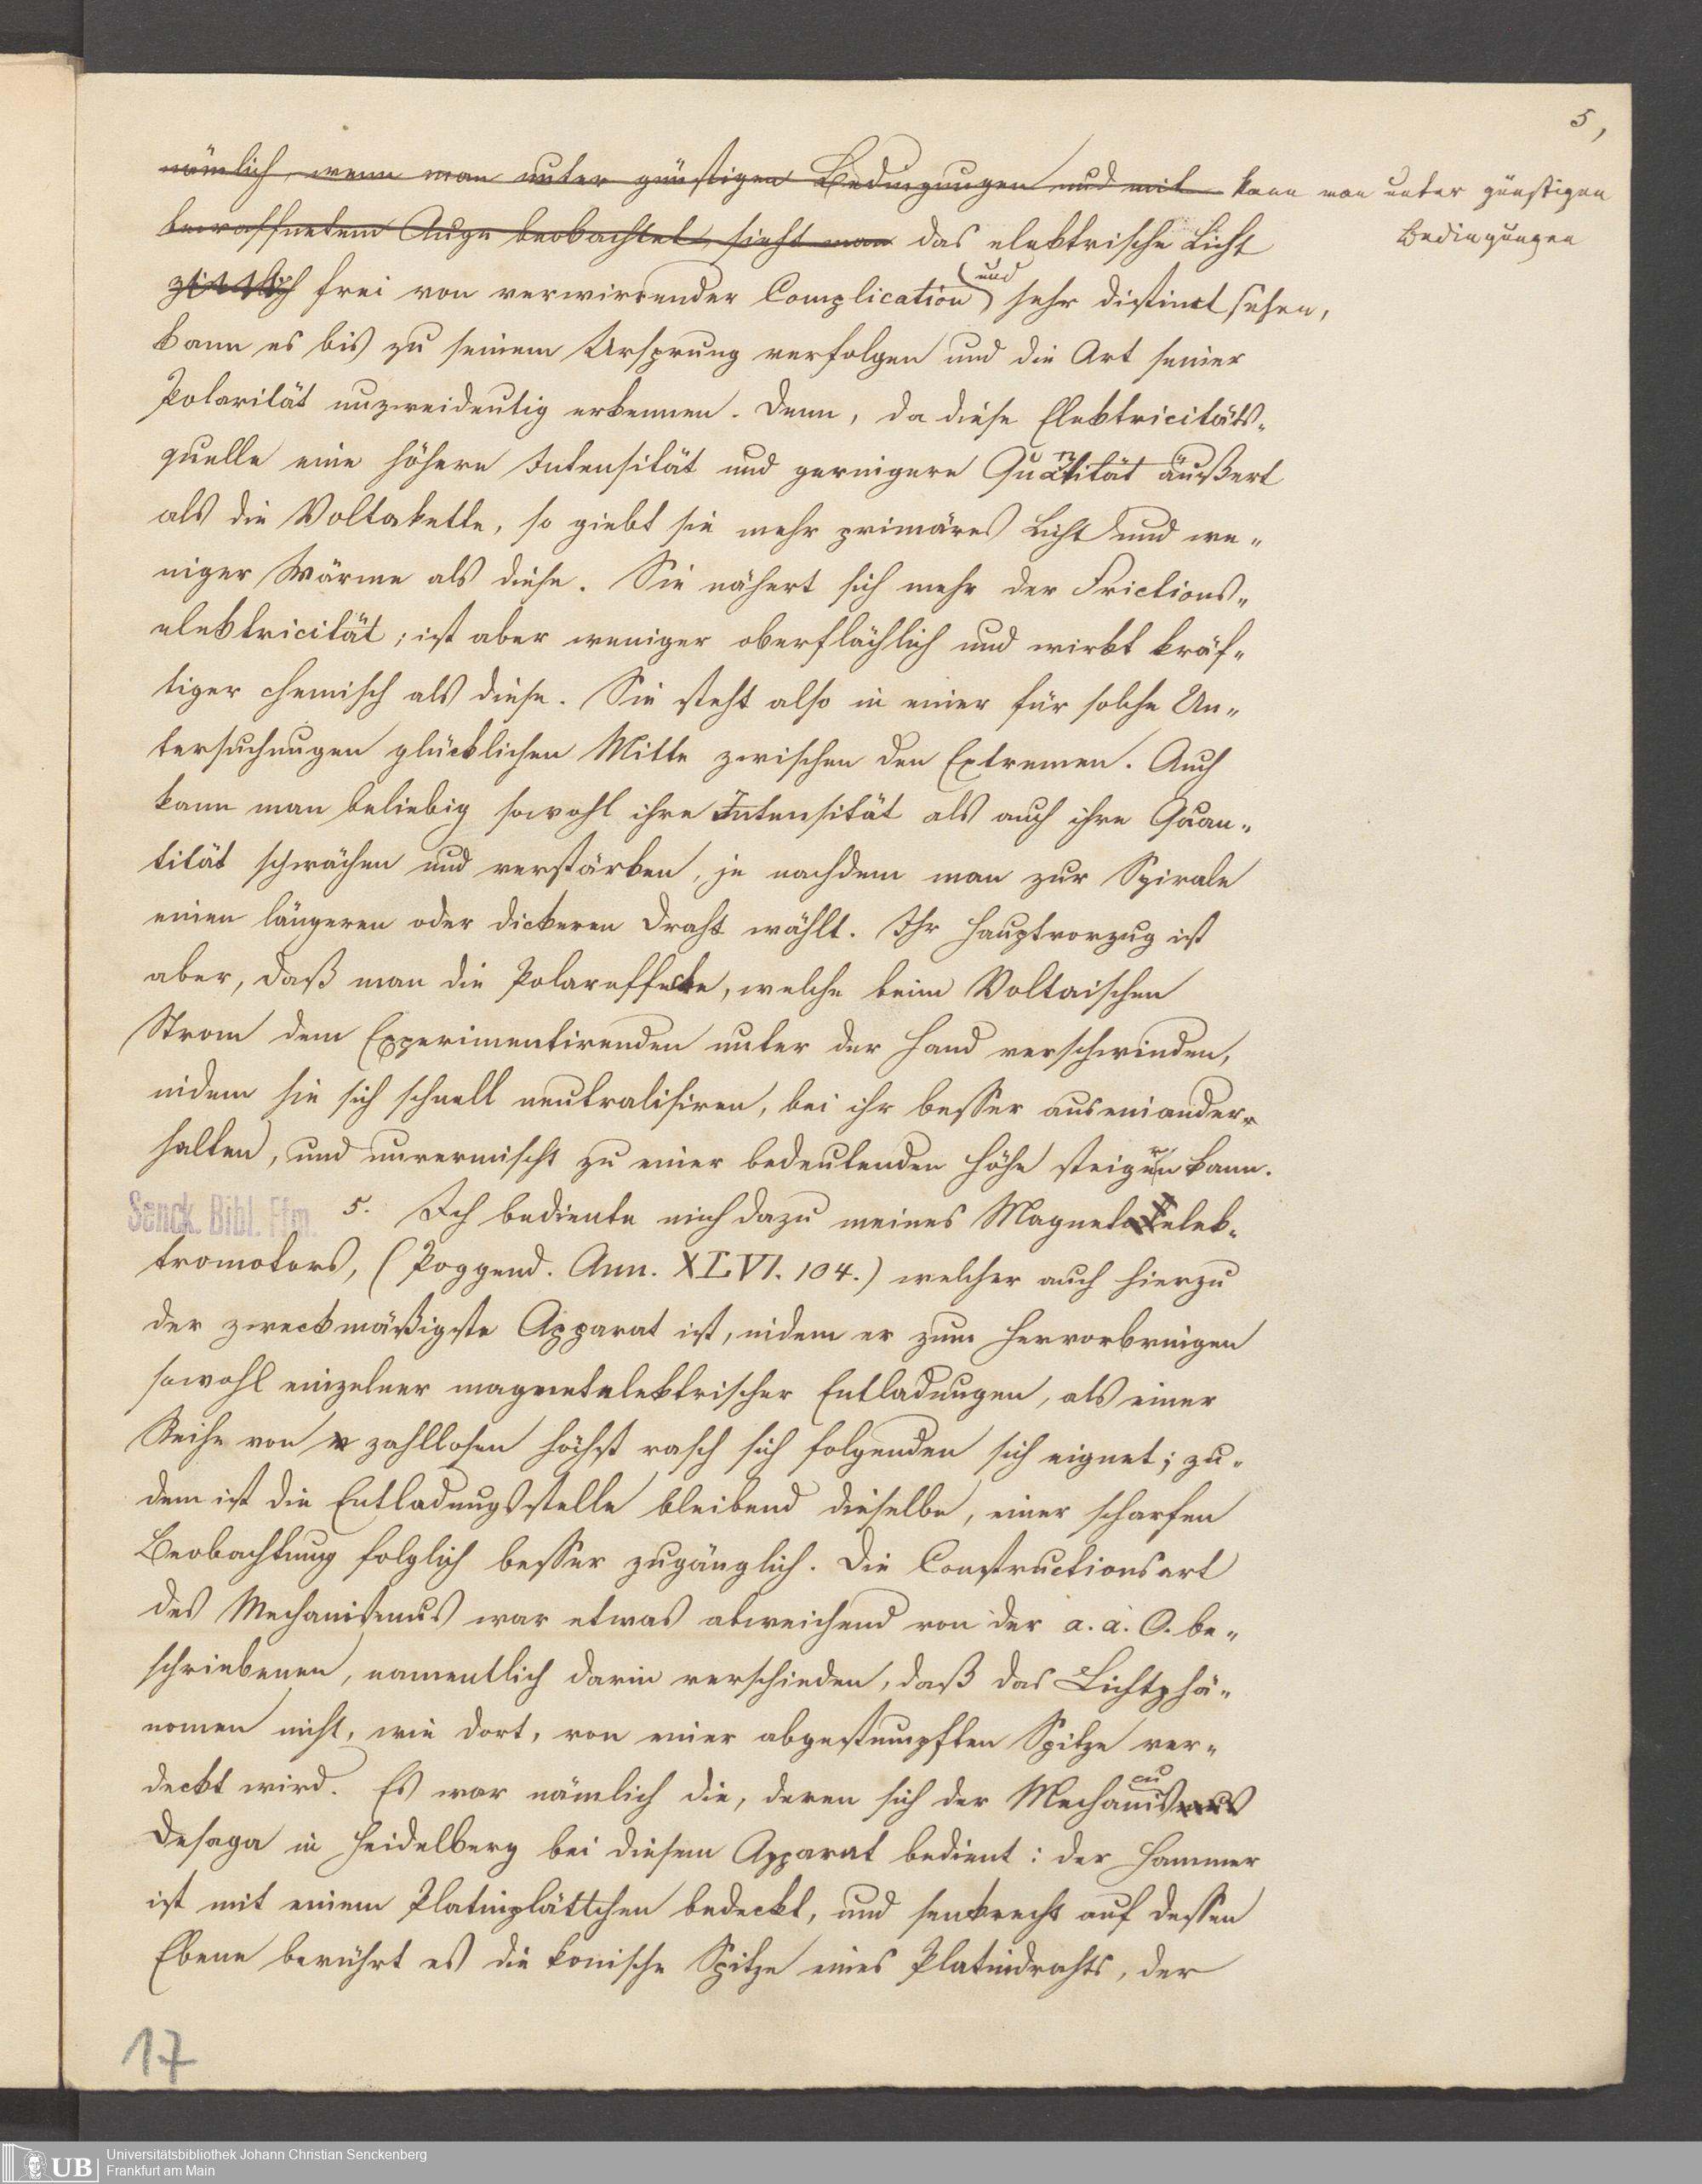 5,
nämlich, wenn man unter günstigen Bedingungen und mit kann man unter günstigen
Bedingungen
bewaffnetem Auge beobachtet, sieht man das elektrische Licht
ziemlich frei von verwirrender Complication und sehr distinct sehen,
kann es bis zu seinem Ursprung verfolgen und die Art seiner
Polarität unzweideutig erkennen. Denn, da diese Elektricitäts-
quelle eine höhere Intensität und geringere Quantität äußert
als die Voltakette, so giebt sie mehr primäres Licht und we-
niger Wärme als diese. Sie nähert sich mehr der Frictions-
elektricität; ist aber weniger oberflächlich und wirkt kräf-
tiger chemisch als diese. Sie steht also in einer für solche Un-
tersuchungen glücklichen Mitte zwischen den Extremen. Auch
kann man beliebig sowohl ihre Intensität als auch ihre Quan-
tität schwächen und verstärken, je nachdem man zur Spirale
einen längeren oder dickeren Draht wählt. Ihr Hauptvorzug ist
aber, daß man die Polareffekte, welche beim Voltaischen
Strom dem Experimentirenden unter der Hand verschwinden,
indem sie sich schnell neutralisiren, bei ihr besser auseinander-
halten, und unvermischt zu einer bedeutenden Höhe steigern kann.
Senck. Bibl. Ffm.
5. Ich bediente mich dazu meines Magnetelek-
tromotors, (Poggend. Ann. XLVI. 104.) welcher auch hierzu
der zweckmäßigste Apparat ist, indem er zum Hervorbringen
sowohl einzelner magnetelektrischer Entladungen, als einer
Reihe von zahllosen höchst rasch sich folgenden sich eignet; zu-
dem ist die Entladungsstelle bleibend dieselbe, einer scharfen
Beobachtung folglich besser zugänglich. Die Constructionsart
des Mechanismus war etwas abweichend von der a. a. O. be-
schriebenen, namentlich darin verschieden, daß das Lichtphä-
nomen nicht, wie dort, von einer abgestumpften Spitze ver-
deckt wird. Es war nämlich die, deren sich der Mechanicus
Desaga in Heidelberg bei diesem Apparat bedient: der Hammer
ist mit einem Platinplättchen bedeckt, und senkrecht auf dessen
Ebene berührt es die konische Spitze eines Platindrahts, der
17
UB
Universitätsbibliothek Johann Christian Senckenberg
Frankfurt am Main